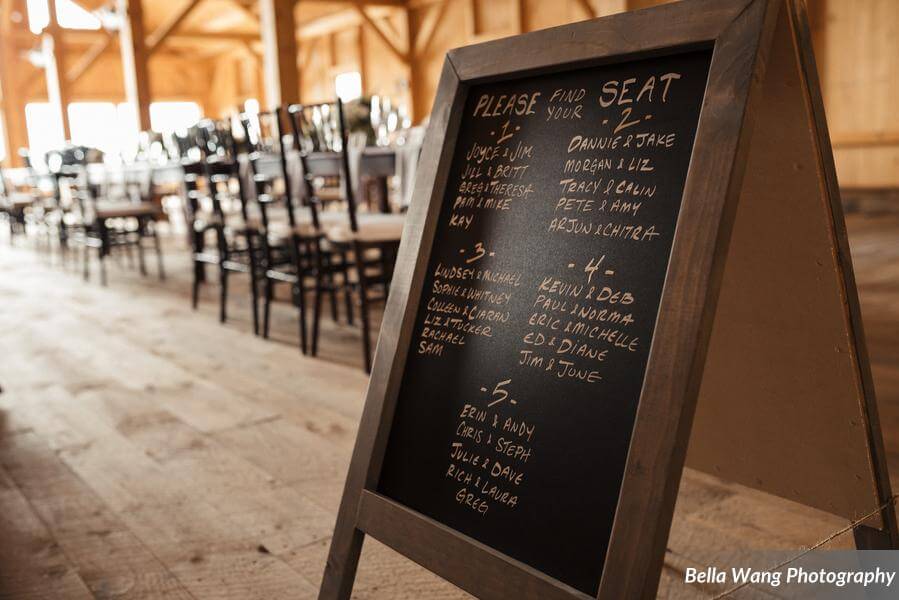 PLEASE FIND YOUR SEAT
-1-
JOYCE & JIM
JILL & BRITT
GREG & THERESA
PAM & MIKE
KAY
-2-
DANNIE & JAKE
MORGAN & LIZ
TRACY & CALIN
PETE & AMY
ARJUN & CHITRA
-3-
LINDSEY & MICHAEL
SOPHIE & WHITNEY
COLLEEN & CIARAN
LIZ & TUCKER
RACHAEL
SAM
-4-
KEVIN & DEB
PAUL & NORMA
ERIC & MICHELLE
ED & DIANE
JIM & JUNE
-5-
ERIN & ANDY
CHRIS & STEPH
JULIE & DAVE
RICH & LAURA
GREG
Bella Wang Photography